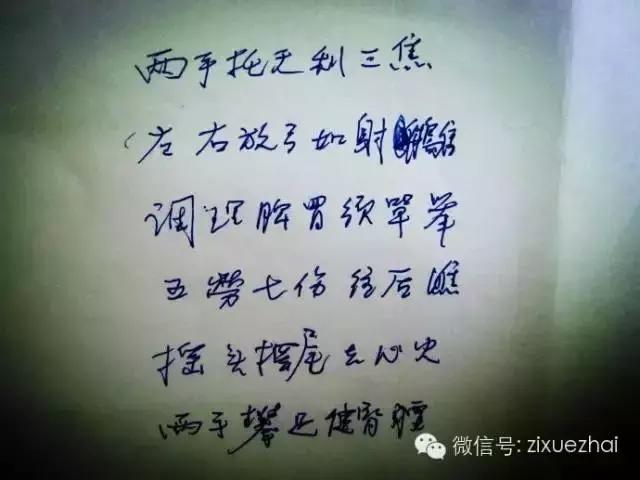 两手托天利三焦
左右放弓如射鵰
调理脾胃须單举
五劳七伤往后瞧
摇头摆尾去心火
两手攀足健肾腰
微信号: zixuezhai